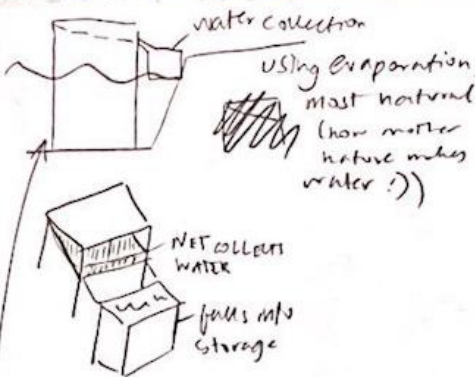 water collection
using evaporation
most natural
(how mother
nature makes
water :))
NET COLLECTS
WATER
falls into
storage